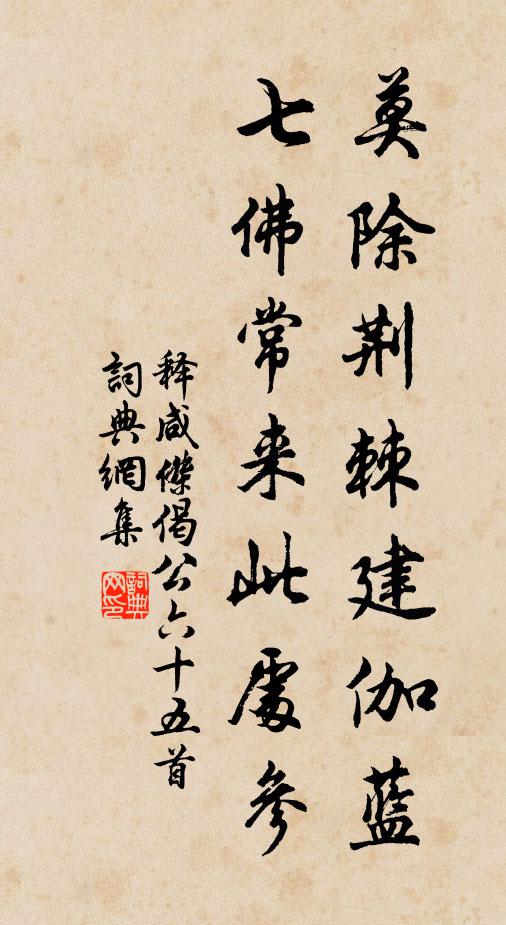 莫除荆棘建伽藍
七佛常来此處參
释咸傑偈公六十五首
詞典網集
詞典网印